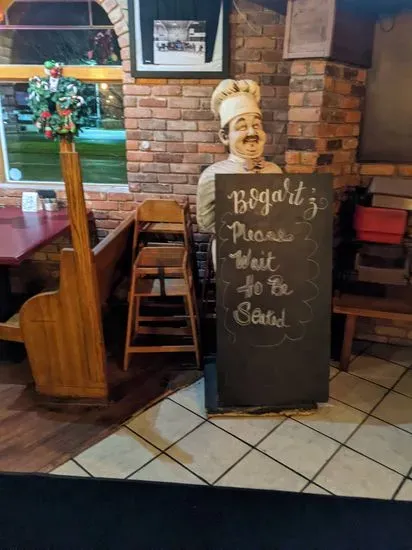 Bogart'z
Please
Wait
to Be
Seated